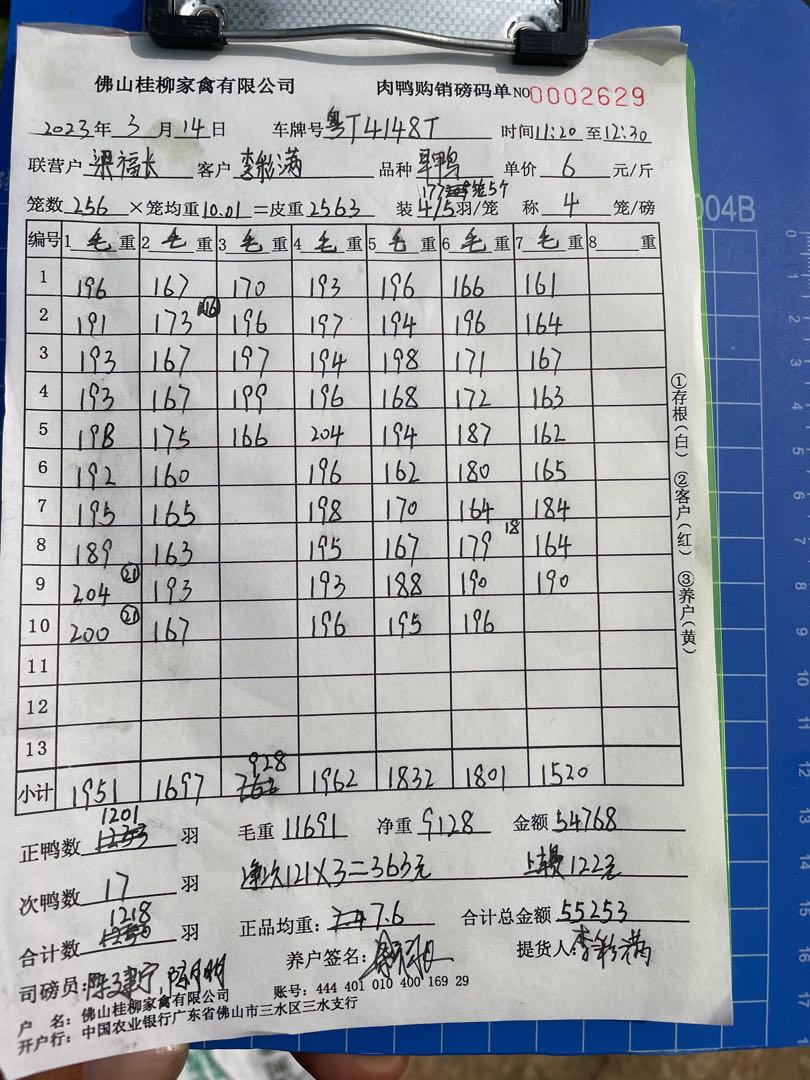 佛山桂柳家禽有限公司 肉鸭购销磅码单 NO 0002629
2023年 3 月 14 日 车牌号粤T4148T 时间11:20 至12:30
联营户 梁福长 客户 李彩满 品种 旱鸭 单价 6 元/斤
笼数 256 ×笼均重10.01 =皮重 2563 装 4/5 羽/笼 称 4 笼/磅
编号 1 毛 重 2 毛 重 3 毛 重 4 毛 重 5 毛 重 6 毛 重 7 毛 重 8 重
1 196 167 170 193 196 166 161
2 191 173 16 196 197 194 196 164
3 193 167 197 194 198 171 167
4 193 167 199 196 168 172 163
5 198 175 166 204 194 187 162
6 192 160 196 162 180 165
7 195 165 198 170 164 184
8 189 163 195 167 179 18 164
9 204 21 193 193 188 190 190
10 200 21 167 196 195 196
11
12
13
小计 1951 1697 928 1962 1832 1801 1520
正鸭数 1201 羽 毛重 11691 净重 9128 金额 54768
次鸭数 17 羽 净次121×3=363元 122元
合计数 1218 羽 正品均重: 7.6 合计总金额 55253
司磅员: 养户签名: 提货人: 李彩满
户 名: 佛山桂柳家禽有限公司 账号: 444 401 010 400 169 29
开户行: 中国农业银行广东省佛山市三水区三水支行
①存根(白) ②客户(红) ③养户(黄)
004B
0
1
2
3
4
5
6
7
8
9
10
11
12
13
14
15
16
17